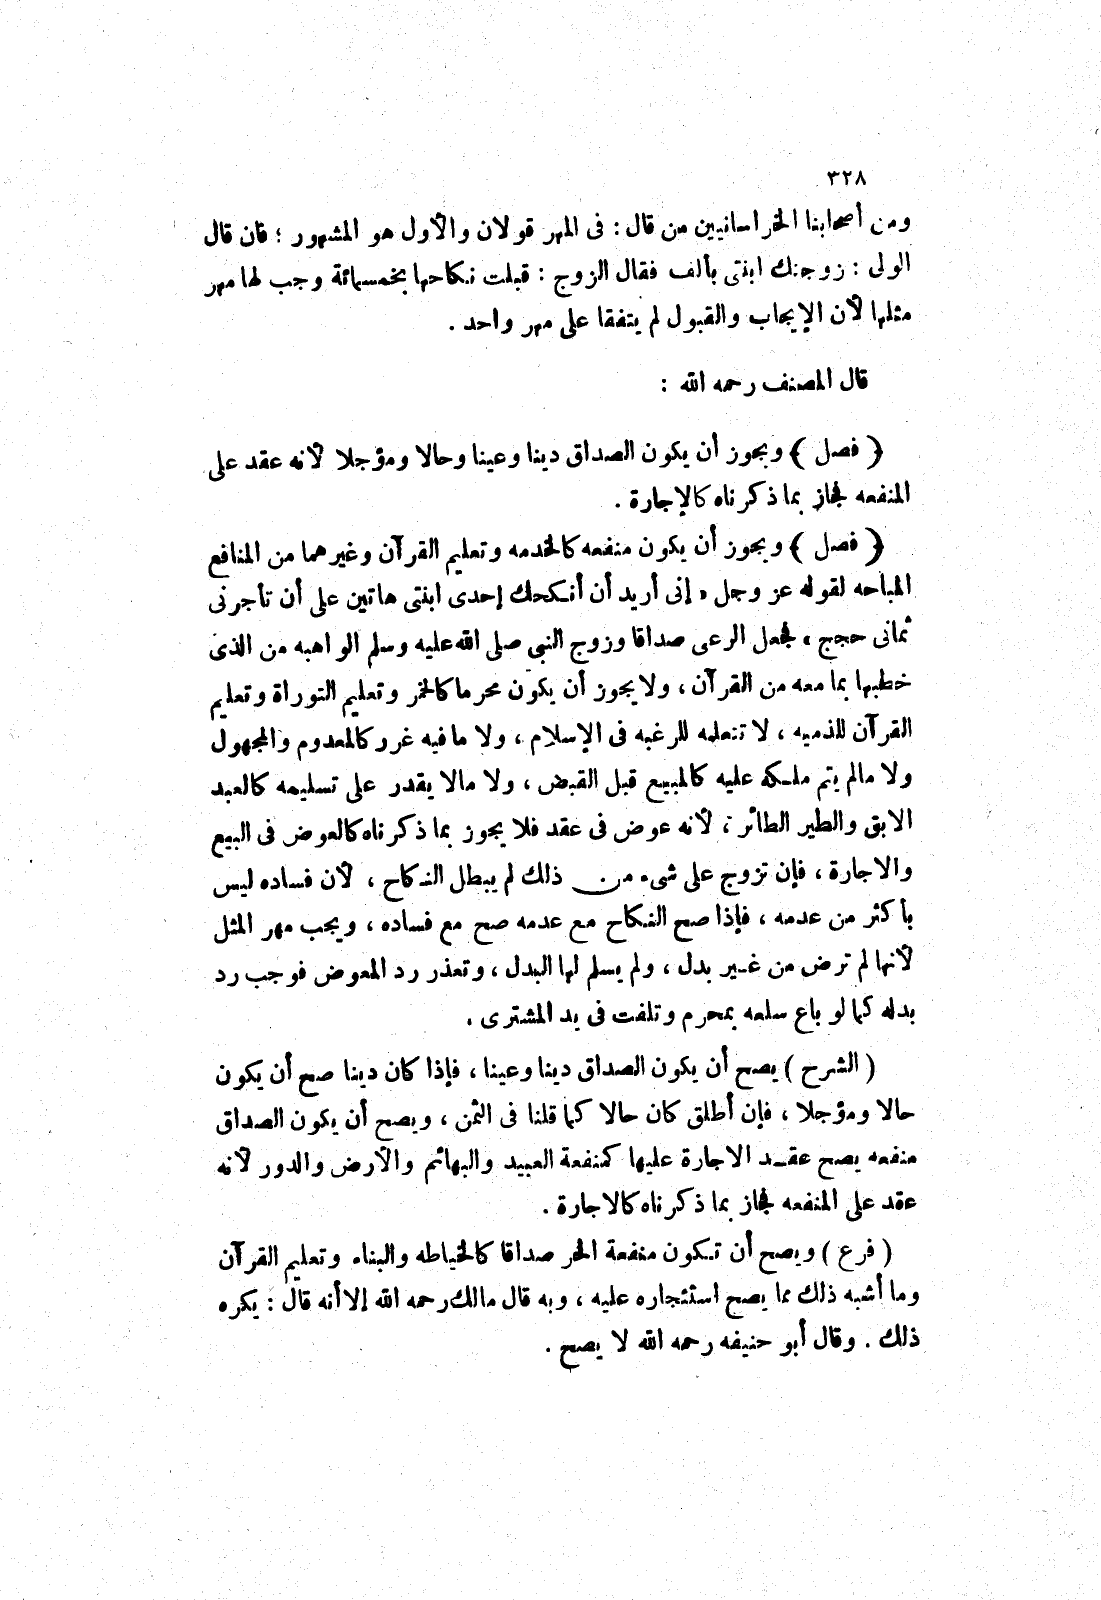 ٣٢٨
ومن أصحابنا الخراسانيين من قال : فى المهر قولان والأول هو المشهور ؛ فان قال
الولى : زوجتك ابنتى بألف فقال الزوج : قبلت نكاحها بخمسمائة وجب لها مهر
مثلها لأن الإيجاب والقبول لم يتفقا على مهر واحد .
قال المصنف رحمه الله :
﴿ فصل ﴾ ويجوز أن يكون الصداق دينا وعينا وحالا ومؤجلا لأنه عقد على
المنفعه فجاز بما ذكرناه كالإجارة .
﴿ فصل ﴾ ويجوز أن يكون منفعه كالخدمه وتعليم القرآن وغيرهما من المنافع
المباحه لقوله عز وجل « إنى أريد أن أنكحك إحدى ابنتى هاتين على أن تأجرنى
ثمانى حجج » فجعل الرعى صداقا وزوج النبى صلى الله عليه وسلم الواهبه من الذى
خطبها بما معه من القرآن ، ولا يجوز أن يكون محرما كالخمر وتعليم التوراة وتعليم
القرآن للذميه ، لا تتعلمه للرغبه فى الإسلام ، ولا ما فيه غرر كالمعدوم والمجهول
ولا مالم يتم ملكه عليه كالمبيع قبل القبض ، ولا مالا يقدر على تسليمه كالعبد
الابق والطير الطائر ، لأنه عوض فى عقد فلا يجوز بما ذكرناه كالعوض فى البيع
والاجارة ، فإن تزوج على شىء من ذلك لم يبطل النكاح ، لأن فساده ليس
بأكثر من عدمه ، فإذا صح النكاح مع عدمه صح مع فساده ، ويجب مهر المثل
لأنها لم ترض من غير بدل ، ولم يسلم لها البدل ، وتعذر رد المعوض فوجب رد
بدله كما لو باع سلعه بمحرم وتلفت فى يد المشترى .
( الشرح ) يصح أن يكون الصداق دينا وعينا ، فإذا كان دينا صح أن يكون
حالا ومؤجلا ، فإن أطلق كان حالا كما قلنا فى الثمن ، ويصح أن يكون الصداق
منفعه يصح عقد الاجارة عليها كمنفعة العبيد والبهائم والأرض والدور لأنه
عقد على المنفعه فجاز بما ذكرناه كالاجارة .
( فرع ) ويصح أن تكون منفعة الحر صداقا كالخياطه والبناء وتعليم القرآن
وما أشبه ذلك مما يصح استئجاره عليه ، وبه قال مالك رحمه الله إلا أنه قال : يكره
ذلك . وقال أبو حنيفه رحمه الله لا يصح .